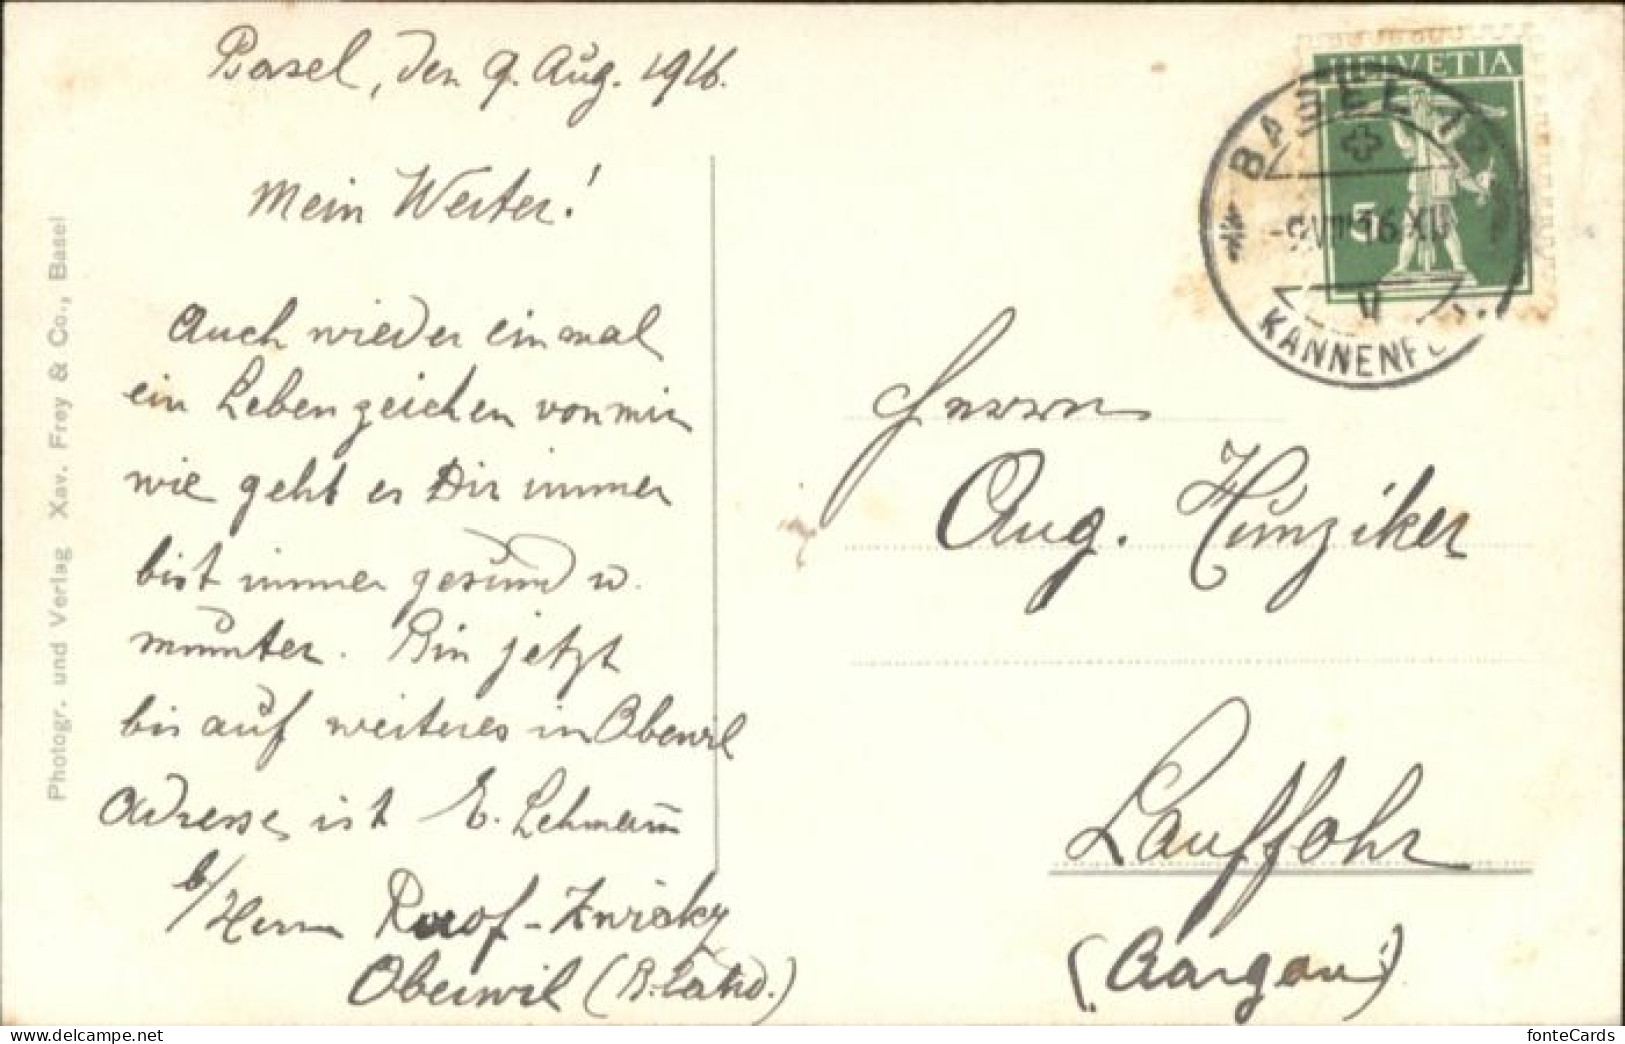 Basel, den 9. Aug. 1916.
Mein Werter!
Auch wieder einmal
ein Lebenzeichen von mir
wie geht es Dir immer
bist immer gesund u.
munter. Bin jetzt
bis auf weiteres in Oberwil
Adresse ist E. Lehmann
b/Herrn -Zwicky
Oberwil (B.land.)
Photogr. und Verlag Xav. Frey & Co., Basel
HELVETIA
5
BASEL 12
-9.VIII.16.XII
V
KANNENF
Herrn
Aug. Hunziker
Lauffohr
(Aargau)
fonteCards